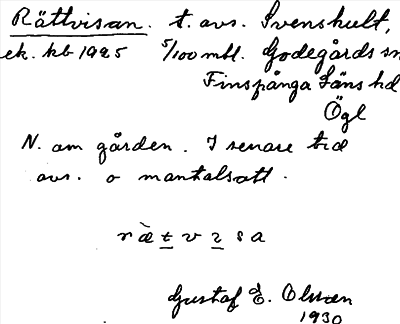 Rättvisan. t. avs. Svenshult,
ek. kb 1925 5/100 mtl. Godegårds sn
Finspånga läns hd
Ögl
N. om gården. I senare tid
avs. o mantalsatt.
r æ̀ t v ɿ s a
Gustaf E. Olsson
1930